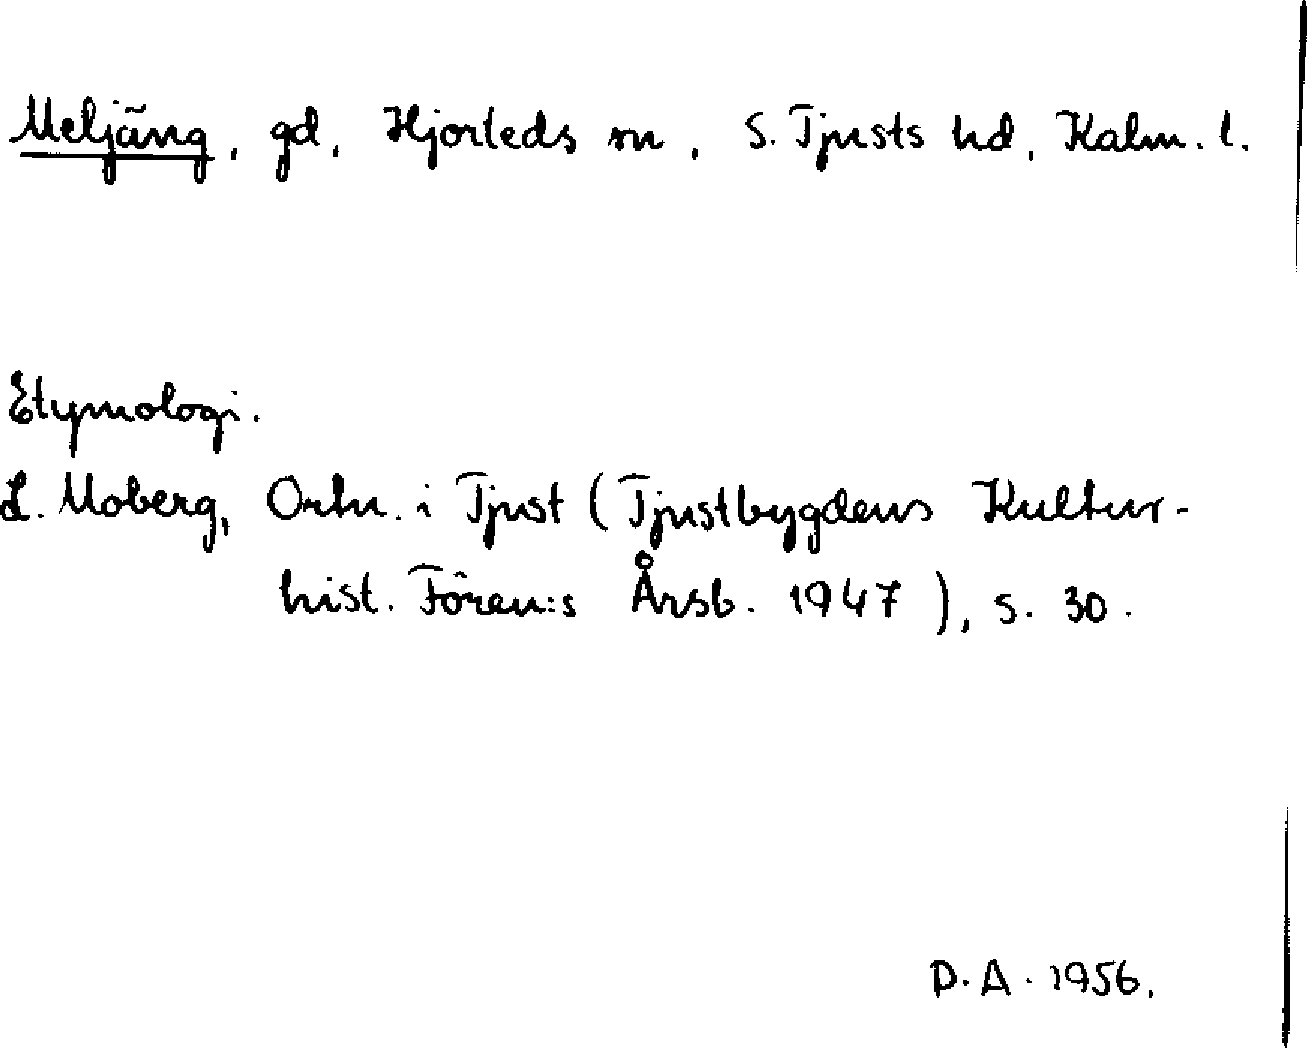 Meljäng, gd, Hjorteds sn, S. Tjusts hd, Kalm. l.
Etymologi.
L. Moberg, Ortn. i Tjust (Tjustbygdens Kultur-
hist. Fören:s Årsb. 1947), s. 30.
D. A. 1956.